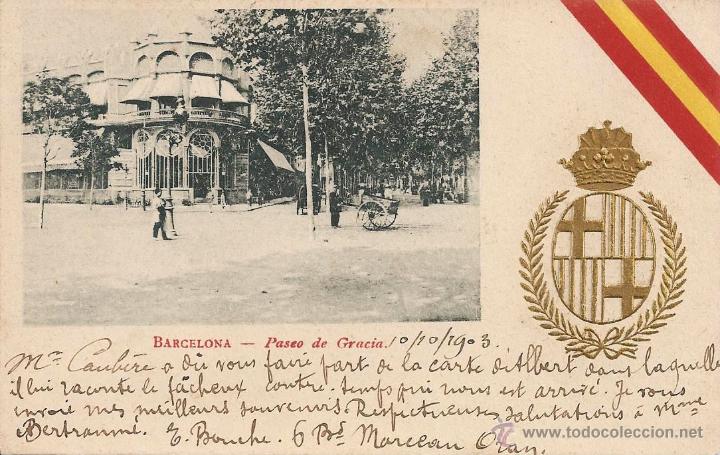 BARCELONA — Paseo de Gracia. 10/10/1903.
Mr Caubère a dû vous faire part de la carte d'Albert dans laquelle
il lui raconte le fâcheux contre-temps qui nous est arrivé. Je vous
envoie mes meilleurs souvenirs Respectueuses salutations à Mme
Bertranne. E. Bouche. 6 Bd Marceau Oran.
www.todocoleccion.net